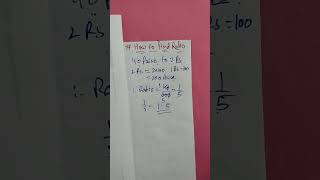 # How to Find Ratio
40 Paise to 2 Rs
2 Rs = 200 1 Rs = 100
= 200 Paise
∴ Ratio = 40 / 200 = 1/5
1/5 = 1:5